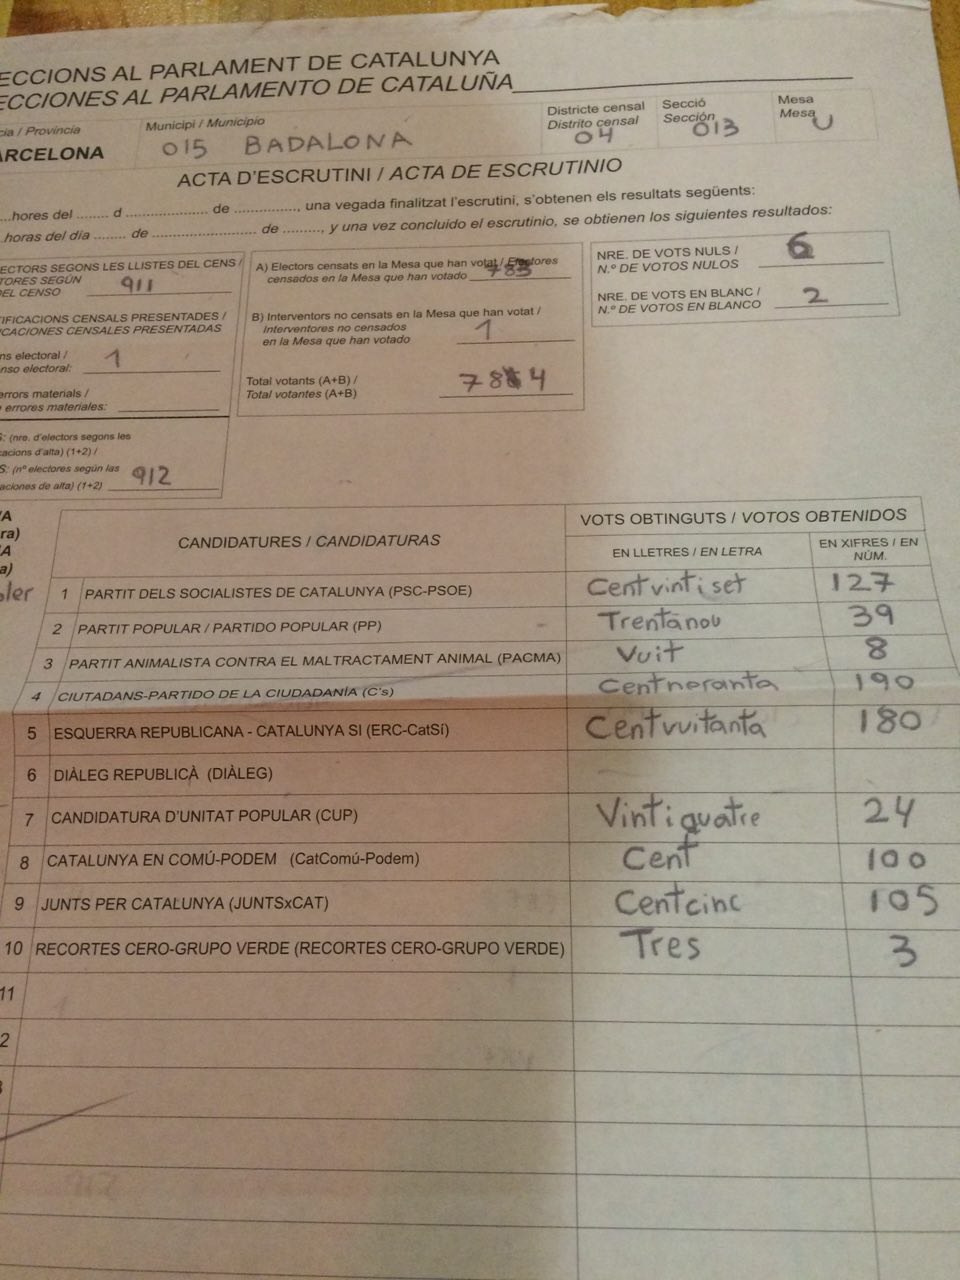 ECCIONS AL PARLAMENT DE CATALUNYA
ECCIONES AL PARLAMENTO DE CATALUÑA
cia / Provincia
ARCELONA
Municipi / Municipio
015 BADALONA
Districte censal
Distrito censal
04
Secció
Sección
013
Mesa
Mesa
U
ACTA D'ESCRUTINI / ACTA DE ESCRUTINIO
...hores del ........ d .................... de ................, una vegada finalitzat l'escrutini, s'obtenen els resultats següents:
.horas del día ........ de ............................ de ........., y una vez concluido el escrutinio, se obtienen los siguientes resultados:
ECTORS SEGONS LES LLISTES DEL CENS /
TORES SEGÚN
DEL CENSO 911
TIFICACIONS CENSALS PRESENTADES /
ICACIONES CENSALES PRESENTADAS
ns electoral /
nso electoral: 1
errors materials /
e errores materiales:
S: (nre. d'electors segons les
cacions d'alta) (1+2) /
S: (nº electores según las
aciones de alta) (1+2) 912
A) Electors censats en la Mesa que han votat / Electores
censados en la Mesa que han votado 783
B) Interventors no censats en la Mesa que han votat /
Interventores no censados
en la Mesa que han votado 1
Total votants (A+B) /
Total votantes (A+B) 784
NRE. DE VOTS NULS /
N.º DE VOTOS NULOS 6
NRE. DE VOTS EN BLANC /
N.º DE VOTOS EN BLANCO 2
VA
ra)
VA
a)
CANDIDATURES / CANDIDATURAS
VOTS OBTINGUTS / VOTOS OBTENIDOS
EN LLETRES / EN LETRA
EN XIFRES / EN
NÚM.
1 PARTIT DELS SOCIALISTES DE CATALUNYA (PSC-PSOE) Cent vint i set 127
2 PARTIT POPULAR / PARTIDO POPULAR (PP) Trentanou 39
3 PARTIT ANIMALISTA CONTRA EL MALTRACTAMENT ANIMAL (PACMA) Vuit 8
4 CIUTADANS-PARTIDO DE LA CIUDADANÍA (C's) Cent noranta 190
5 ESQUERRA REPUBLICANA - CATALUNYA SI (ERC-CatSí) Cent vuitanta 180
6 DIÀLEG REPUBLICÀ (DIÀLEG)
7 CANDIDATURA D'UNITAT POPULAR (CUP) Vint i quatre 24
8 CATALUNYA EN COMÚ-PODEM (CatComú-Podem) Cent 100
9 JUNTS PER CATALUNYA (JUNTSxCAT) Cent cinc 105
10 RECORTES CERO-GRUPO VERDE (RECORTES CERO-GRUPO VERDE) Tres 3
11
2
3